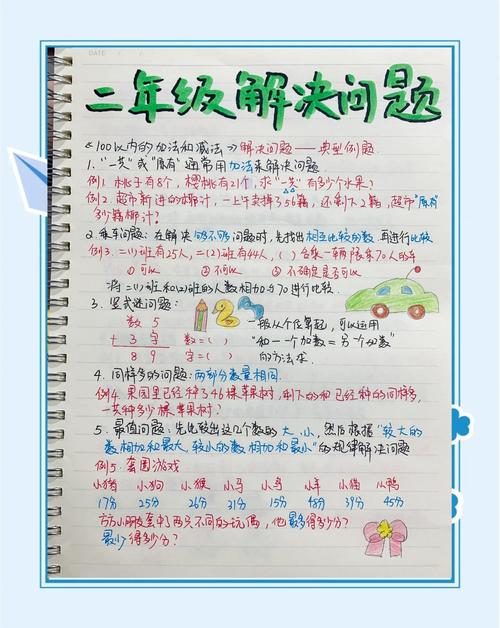 DATE
二年级解决问题
《100以内的加法和减法》解决问题——典型例题
1. "一共"或"原有"通常用加法来解决问题
例1 桃子有8个，樱桃有21个，求"一共"有多少个水果？
例2. 超市新进的椰汁，一上午卖掉了56箱，还剩下2箱，超市"原有"
多少箱椰汁？
2. 乘车问题：在解决够不够问题时，先找出相互比较的数 再进行比较
例3. 二(1)班有25人，二(2)班有44人，( )合乘一辆限乘70人的车
①可以 ②不可以 ③不确定是否可以
将二(1)班和二(2)班的人数相加与70进行比较.
3. 竖式谜问题：
数 5
+ 3 字 数=( )
8 9 字=( )
一般从个位算起，可以运用
"和－一个加数=另一个加数"
的方法求.
4. 同样多的问题：两部分数量相同.
例4. 果园里已经种了46棵苹果树，剩下的和已经种的同样多，
一共种多少棵苹果树？
5. 最值问题：先比较出这几个数的大、小，然后根据"较大的
数相加和最大，较小的数相加和最小"的规律解决问题
例5. 套圈游戏
小猪 小狗 小猴 小马 小鸟 小羊 小猫 小鸭
17分 25分 26分 31分 15分 48分 39分 45分
方方小朋友套中了两只不同的玩偶，他最多得多少分？
最少得多少分？